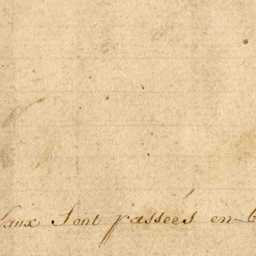 Sont passées en